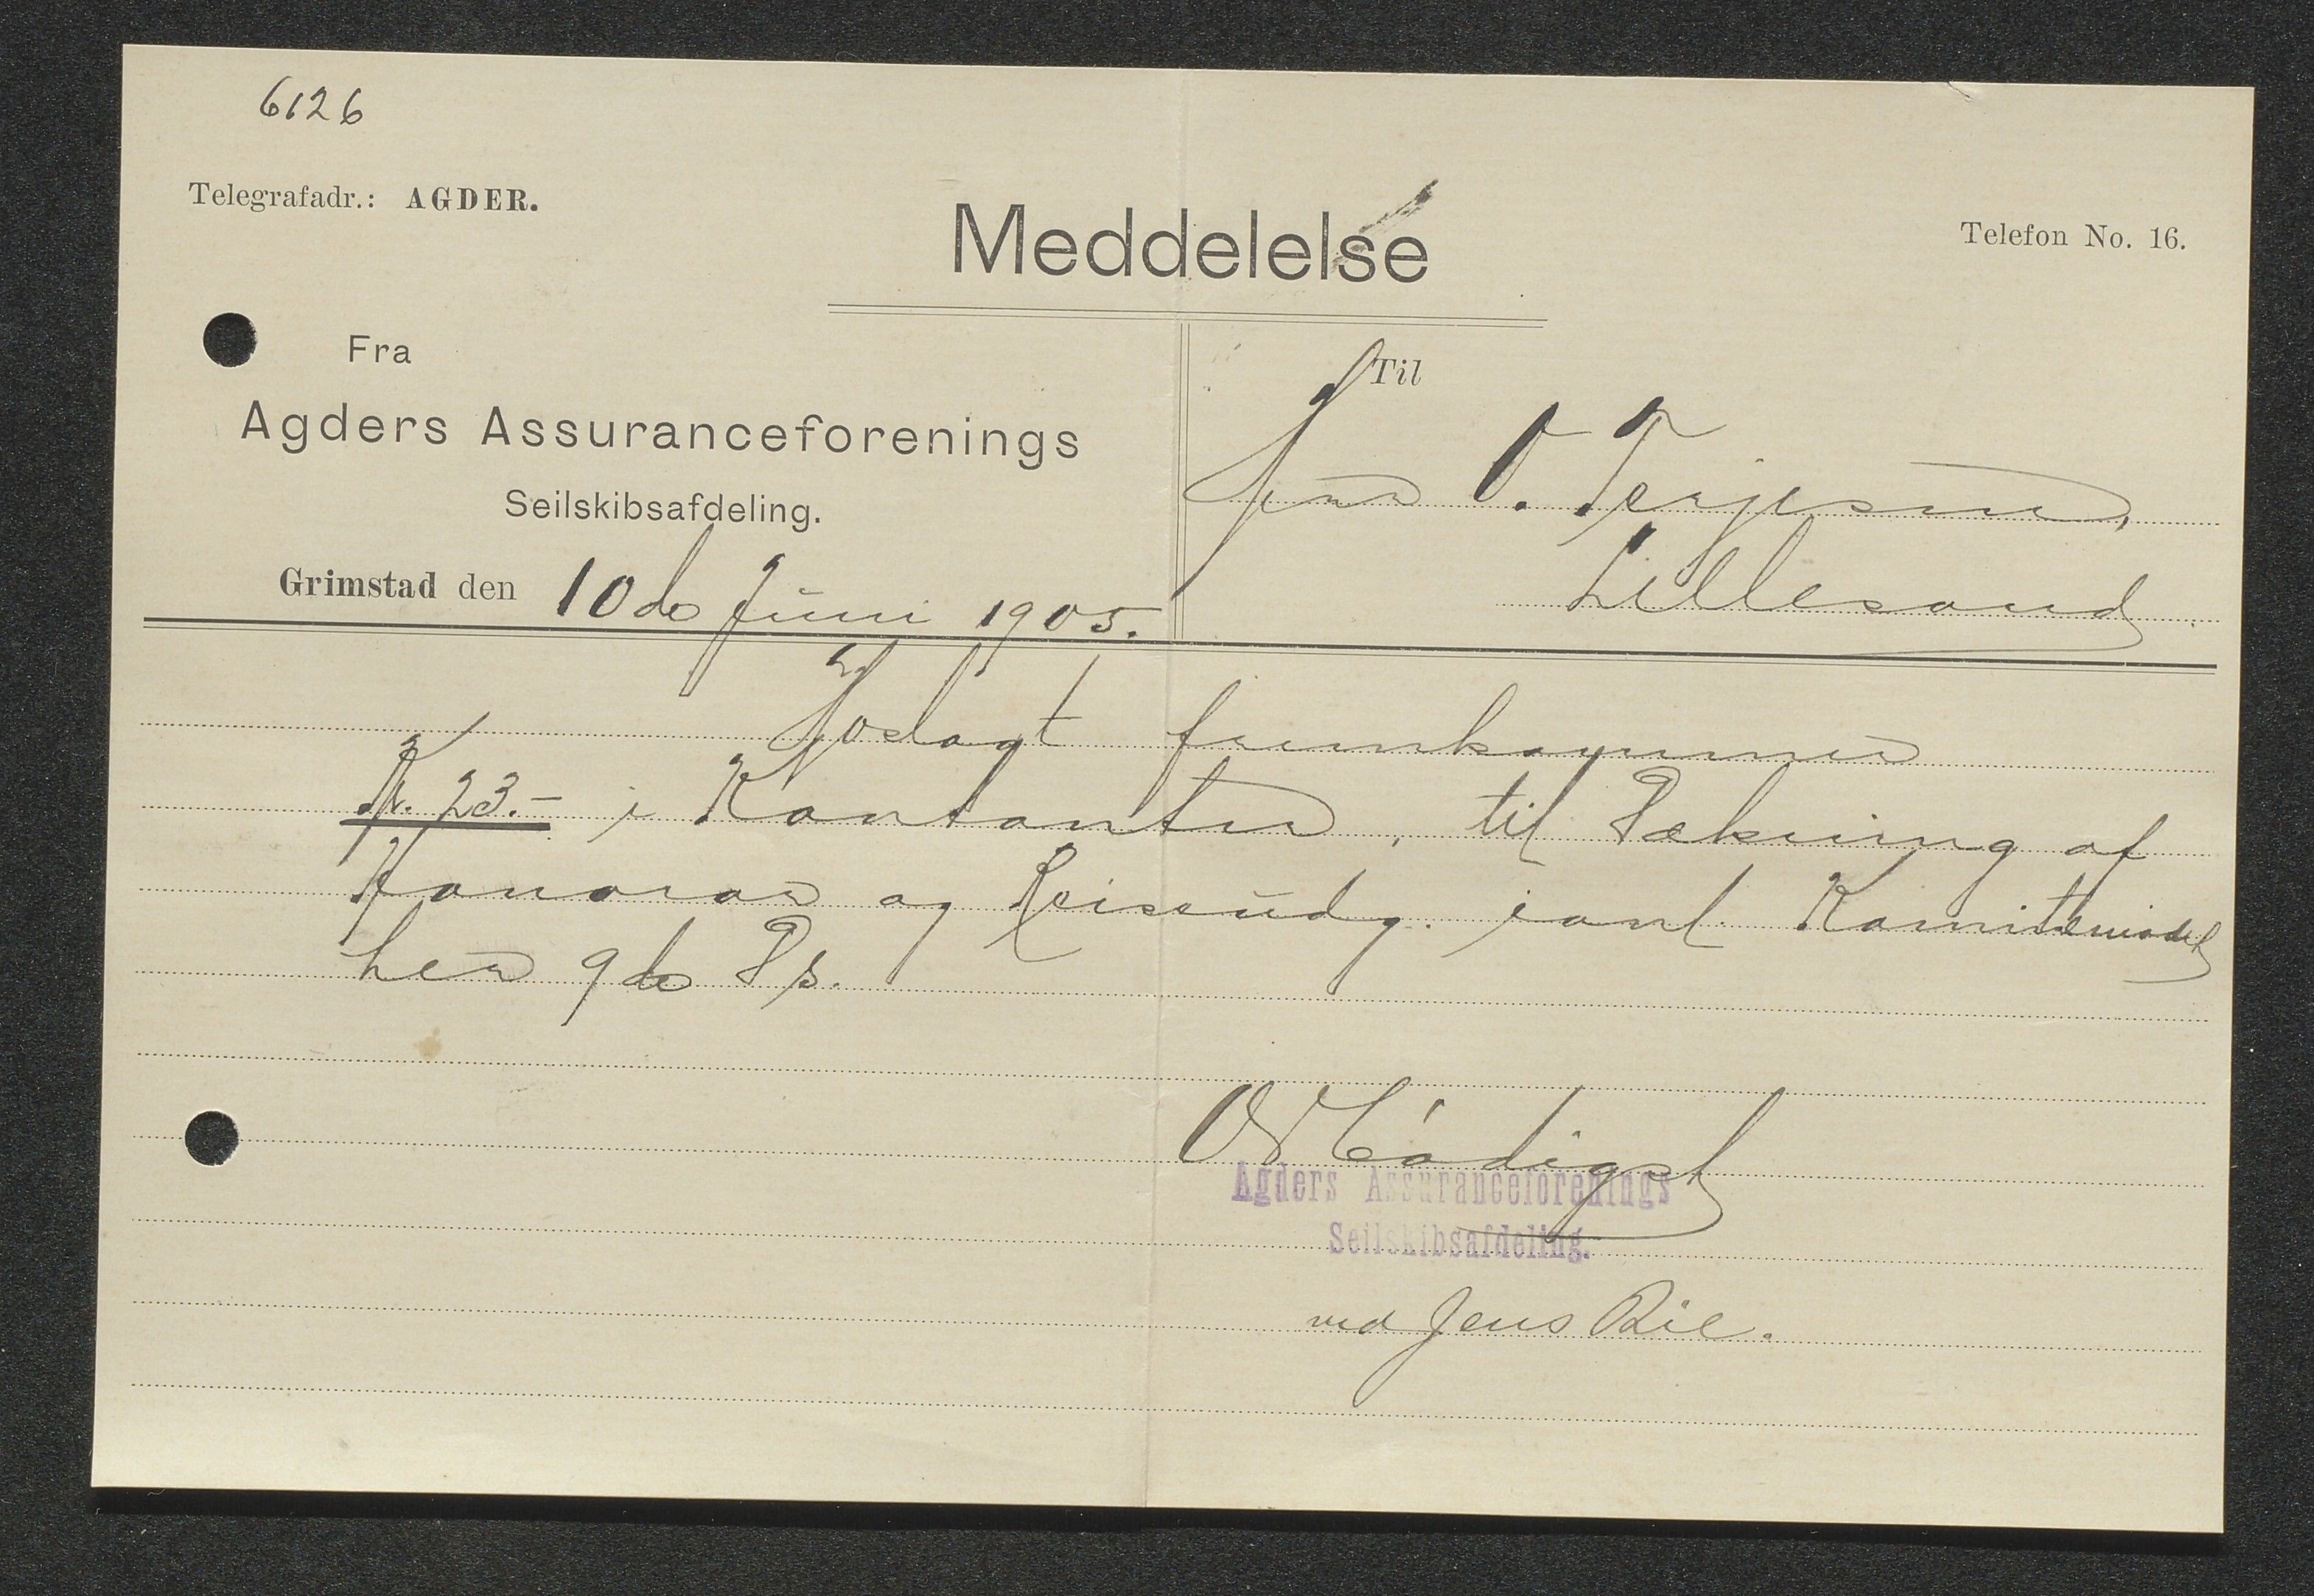 6126
Telegrafadr.: AGDER.
Meddelelse
Telefon No. 16.
Fra
Agders Assuranceforenings
Seilskibsafdeling.
Grimstad den 10de Juni 1905.
Til
Herr O. Terjesen,
Lillesand
Hoslagt fremkommer
Kr. 23.- i Kontanter, til Dækning af
Honorar og Reiseudg. ianl. Komitemødet
her 9de Ds.
Ærbødigst
Agders Assuranceforenings
Seilskibsafdeling.
ved Jens Bie.